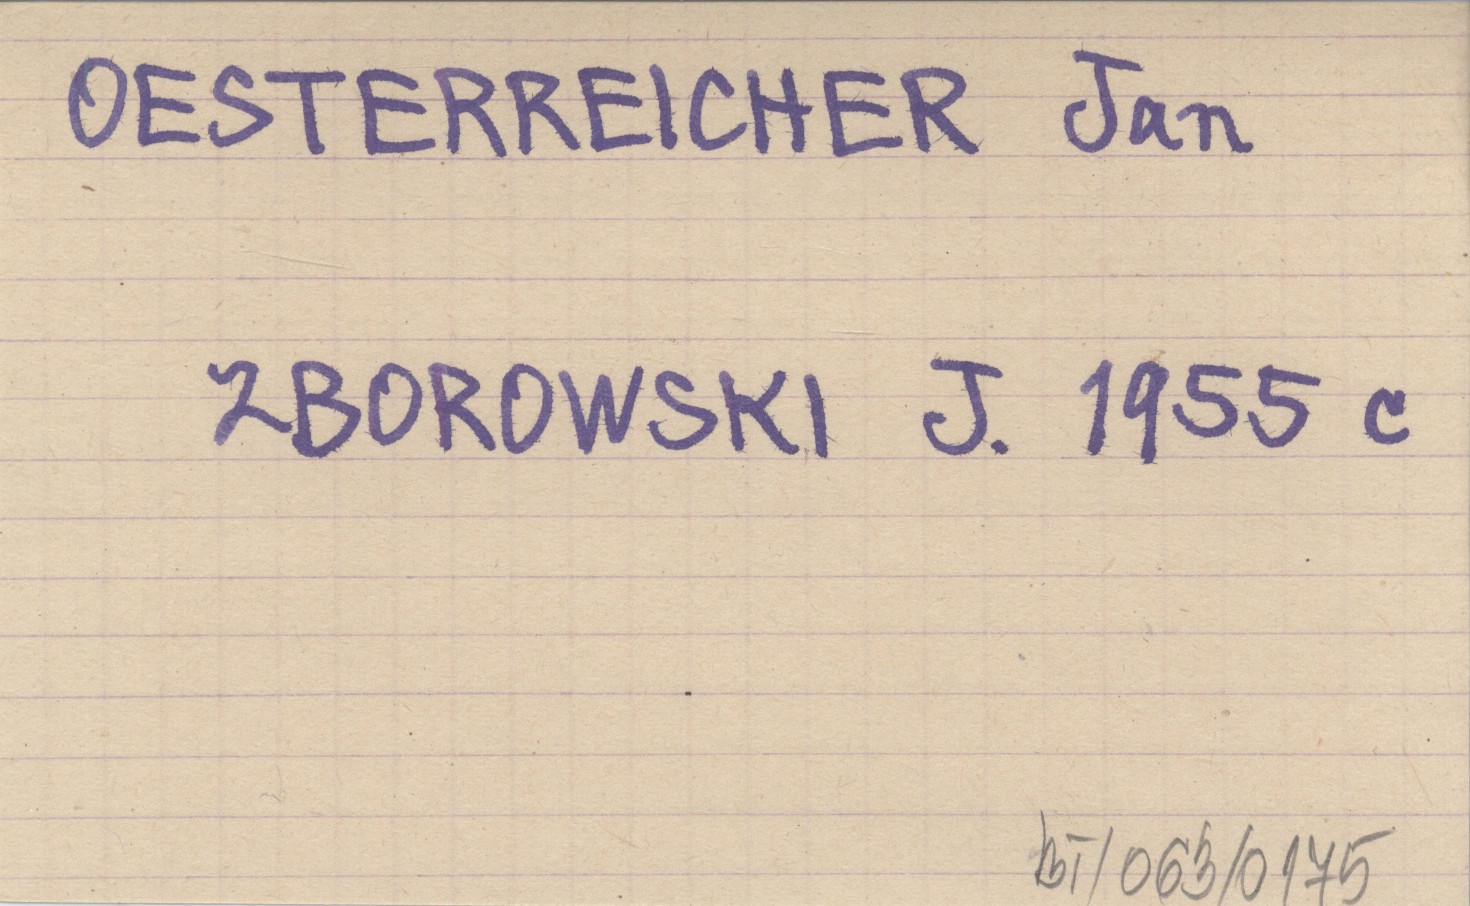 OESTERREICHER Jan
ZBOROWSKI J. 1955 c
bI/063/0175